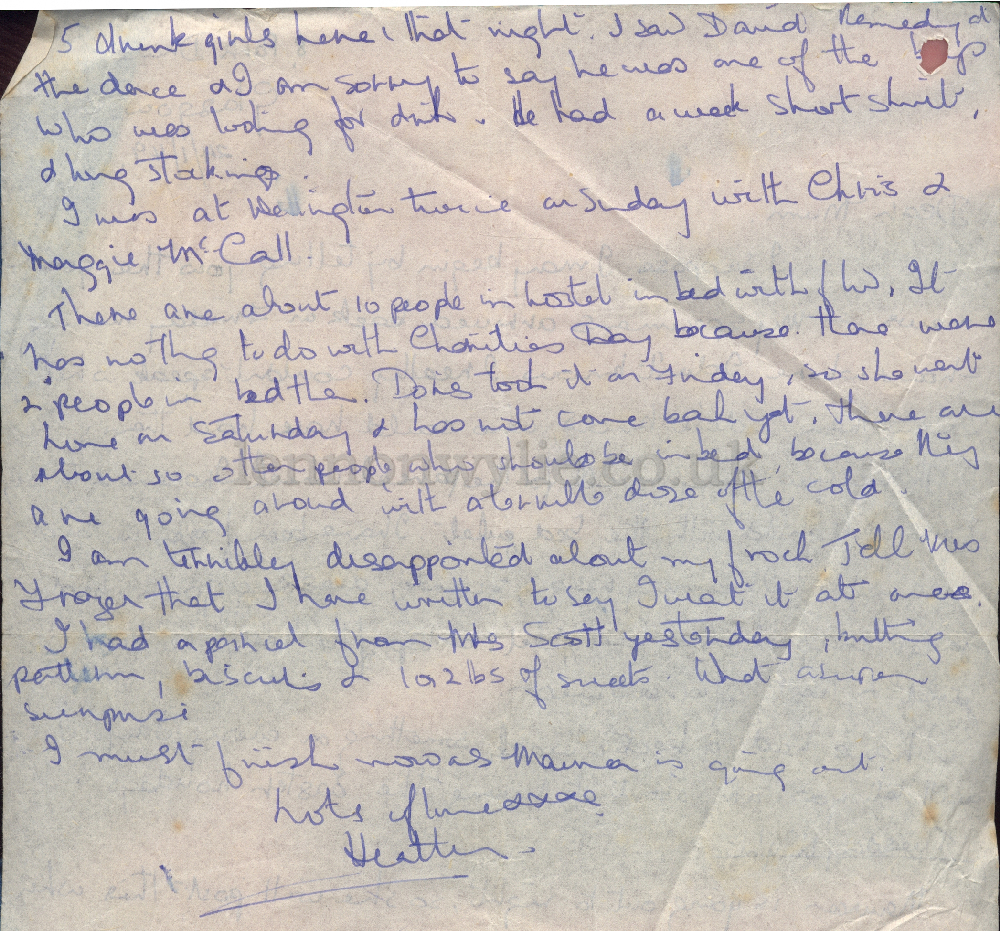 5 drunk girls here that night. I saw David Kennedy at
the dance & I am sorry to say he was one of the boys
who was looking for drink. He had a short skirt,
& long stockings.
I was at twice on Sunday with Chris &
Maggie McCall.
There are about 10 people in hostel in bed with flu. It
has nothing to do with Charities Day because there were
2 people in bed then. Doris took it on Friday, so she went
home on Saturday & has not come back yet. There are
about 50 other people who should be in bed, because they
are going around with a terrible dose of the cold.
I am terribley disappointed about my frock Tell Mrs
Frazer that I have written to say I want it at once.
I had a parcel from Mrs Scott yesterday, knitting
pattern, biscuits & 1 or 2 lbs of sweets. What a
surprise
I must finish now as Mama is going out.
Lots of love xxxx
Heather.
lennonwylie.co.uk